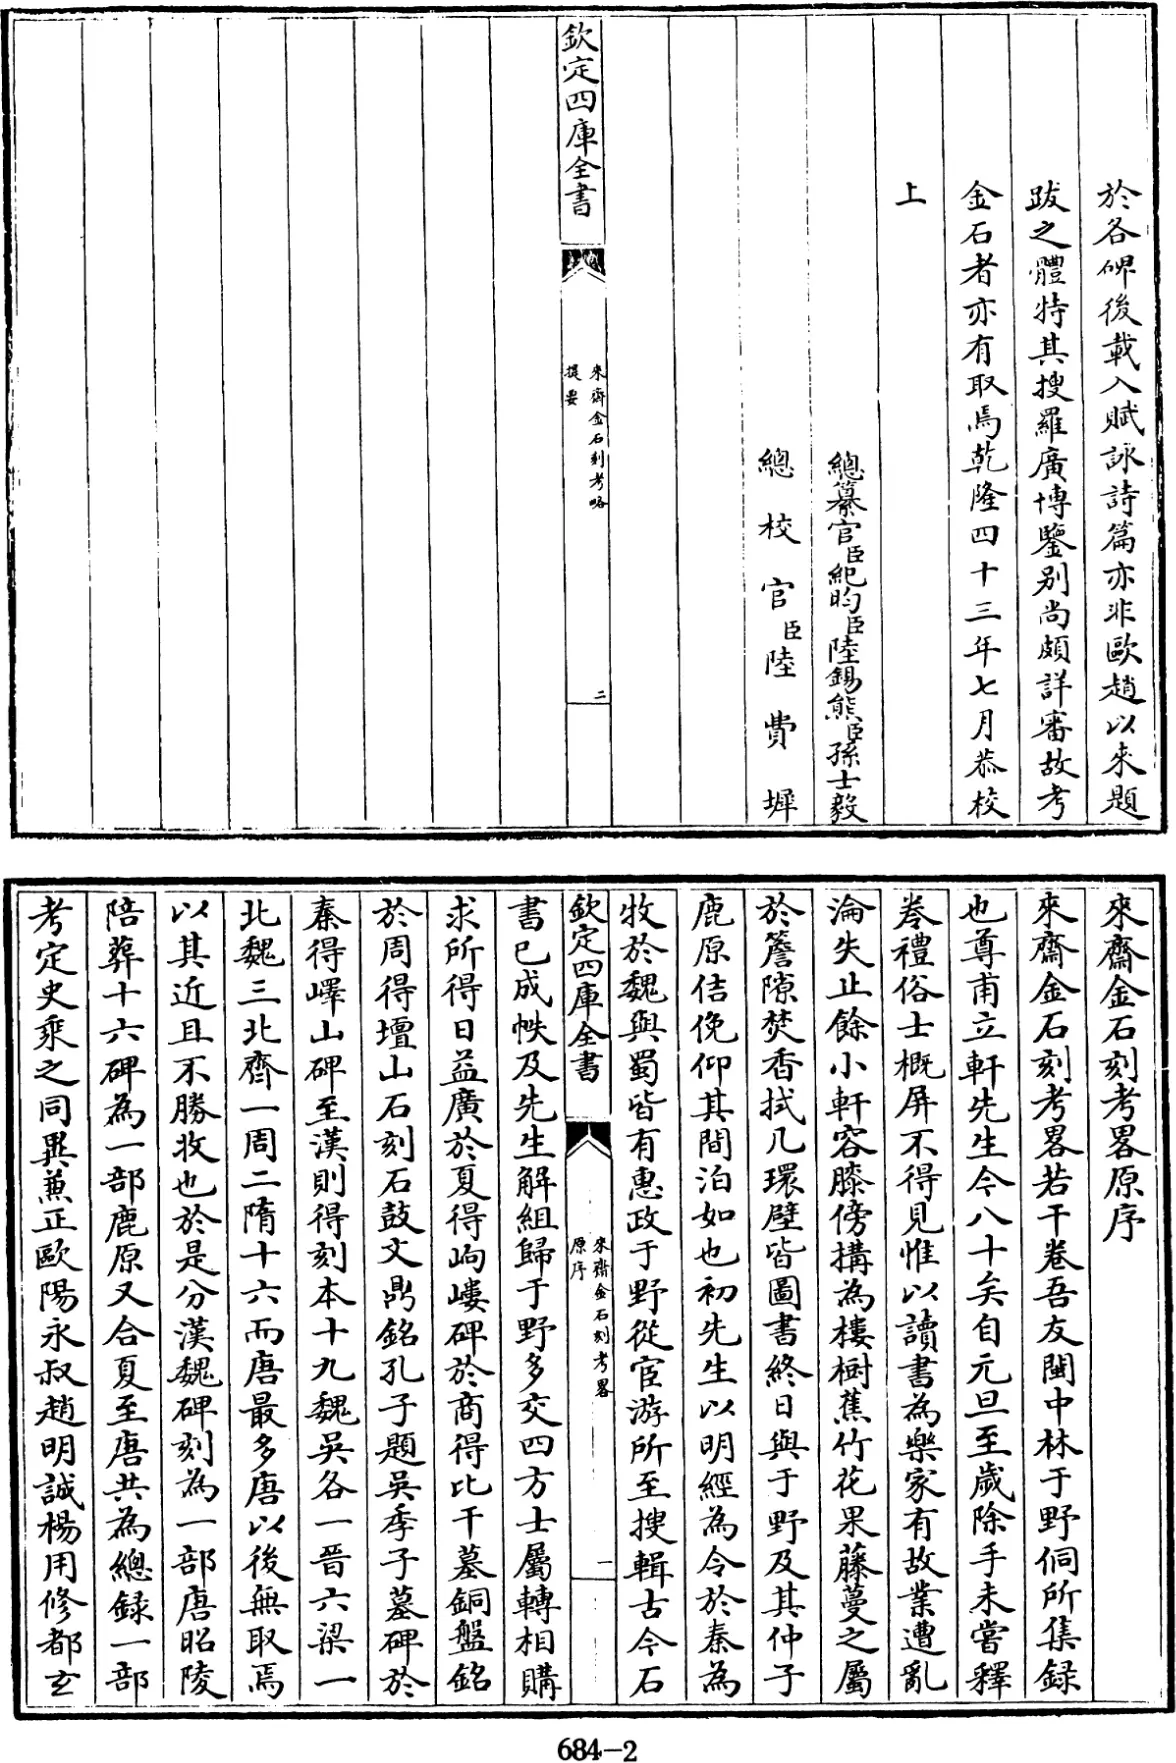 於各碑後載入賦詠詩篇亦非歐趙以來題
跋之體特其搜羅廣博鑒别尚頗詳審故考
金石者亦有取焉乾隆四十三年七月恭校
上
總纂官臣紀昀臣陸錫熊臣孫士毅
總校官臣陸費墀
欽定四庫全書
來齋金石刻考略
提要
二
來齋金石刻考畧原序
來齋金石刻考畧若干卷吾友閩中林于野侗所集録
也尊甫立軒先生今八十矣自元旦至歲除手未嘗釋
卷禮俗士概屏不得見惟以讀書為樂家有故業遭亂
淪失止餘小軒容膝傍構為樓樹蕉竹花果藤蔓之屬
於簷隙焚香拭几環壁皆圖書終日與于野及其仲子
鹿原佶俛仰其間泊如也初先生以明經為令於秦為
牧於魏與蜀皆有惠政于野從宦游所至搜輯古今石
欽定四庫全書
來齋金石刻考畧
原序
一
書已成帙及先生解組歸于野多交四方士屬轉相購
求所得日益廣於夏得岣嶁碑於商得比干墓銅盤銘
於周得壇山石刻石鼓文鼎銘孔子題吳季子墓碑於
秦得嶧山碑至漢則得刻本十九魏吳各一晉六梁一
北魏三北齊一周二隋十六而唐最多唐以後無取焉
以其近且不勝收也於是分漢魏碑刻為一部唐昭陵
陪葬十六碑為一部鹿原又合夏至唐共為總録一部
考定史乘之同異蒹正歐陽永叔趙明誠楊用修都玄
684-2